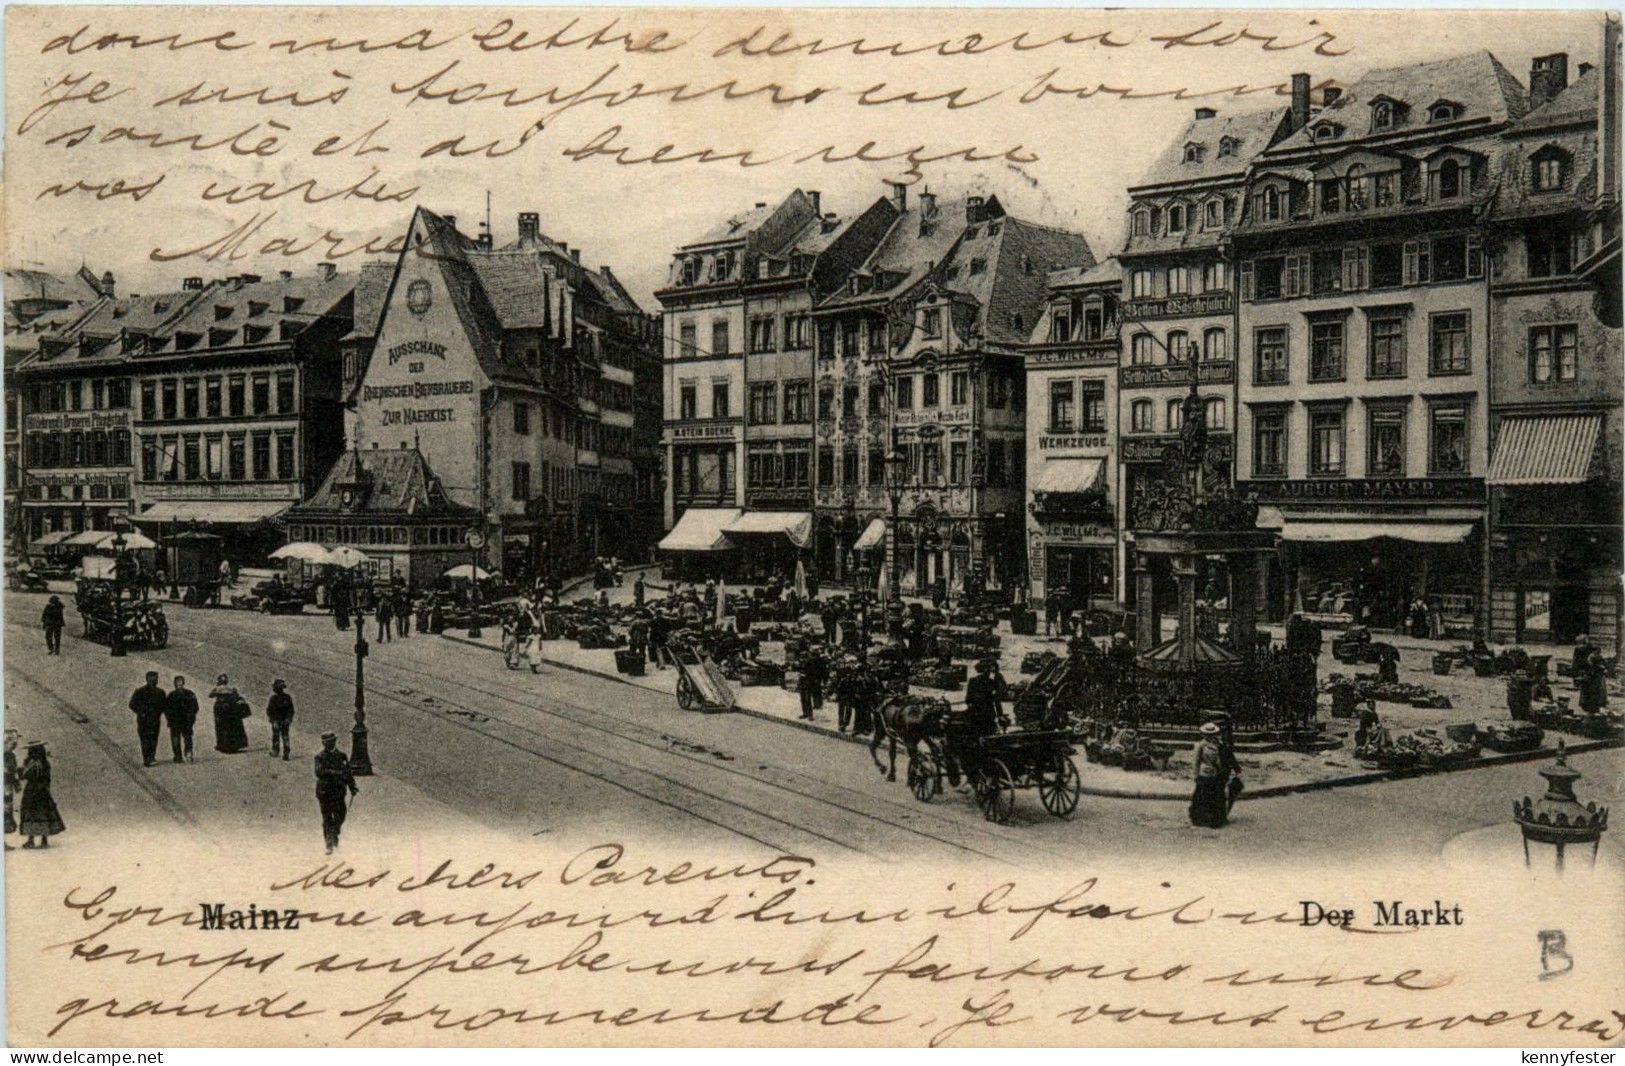 donc ma lettre demain soir
Je suis toujours en bonne
santé et ai bien reçu
vos cartes
Marie
AUSSCHANK
DER
RHEINISCHEN BIERBRAUEREI
ZUR NAEHKIST.
M. STEIN SOEHNE
J.C. WILLMS.
WERKZEUGE.
J.C. WILLMS.
Betten & Wäschefabrik
AUGUST MAYER
Mes chers Parents.
Mainz
Der Markt
Comme aujourd'hui il fait un
temps superbe nous faisons une
grande promenade. Je vous enverrai
B
kennyfester